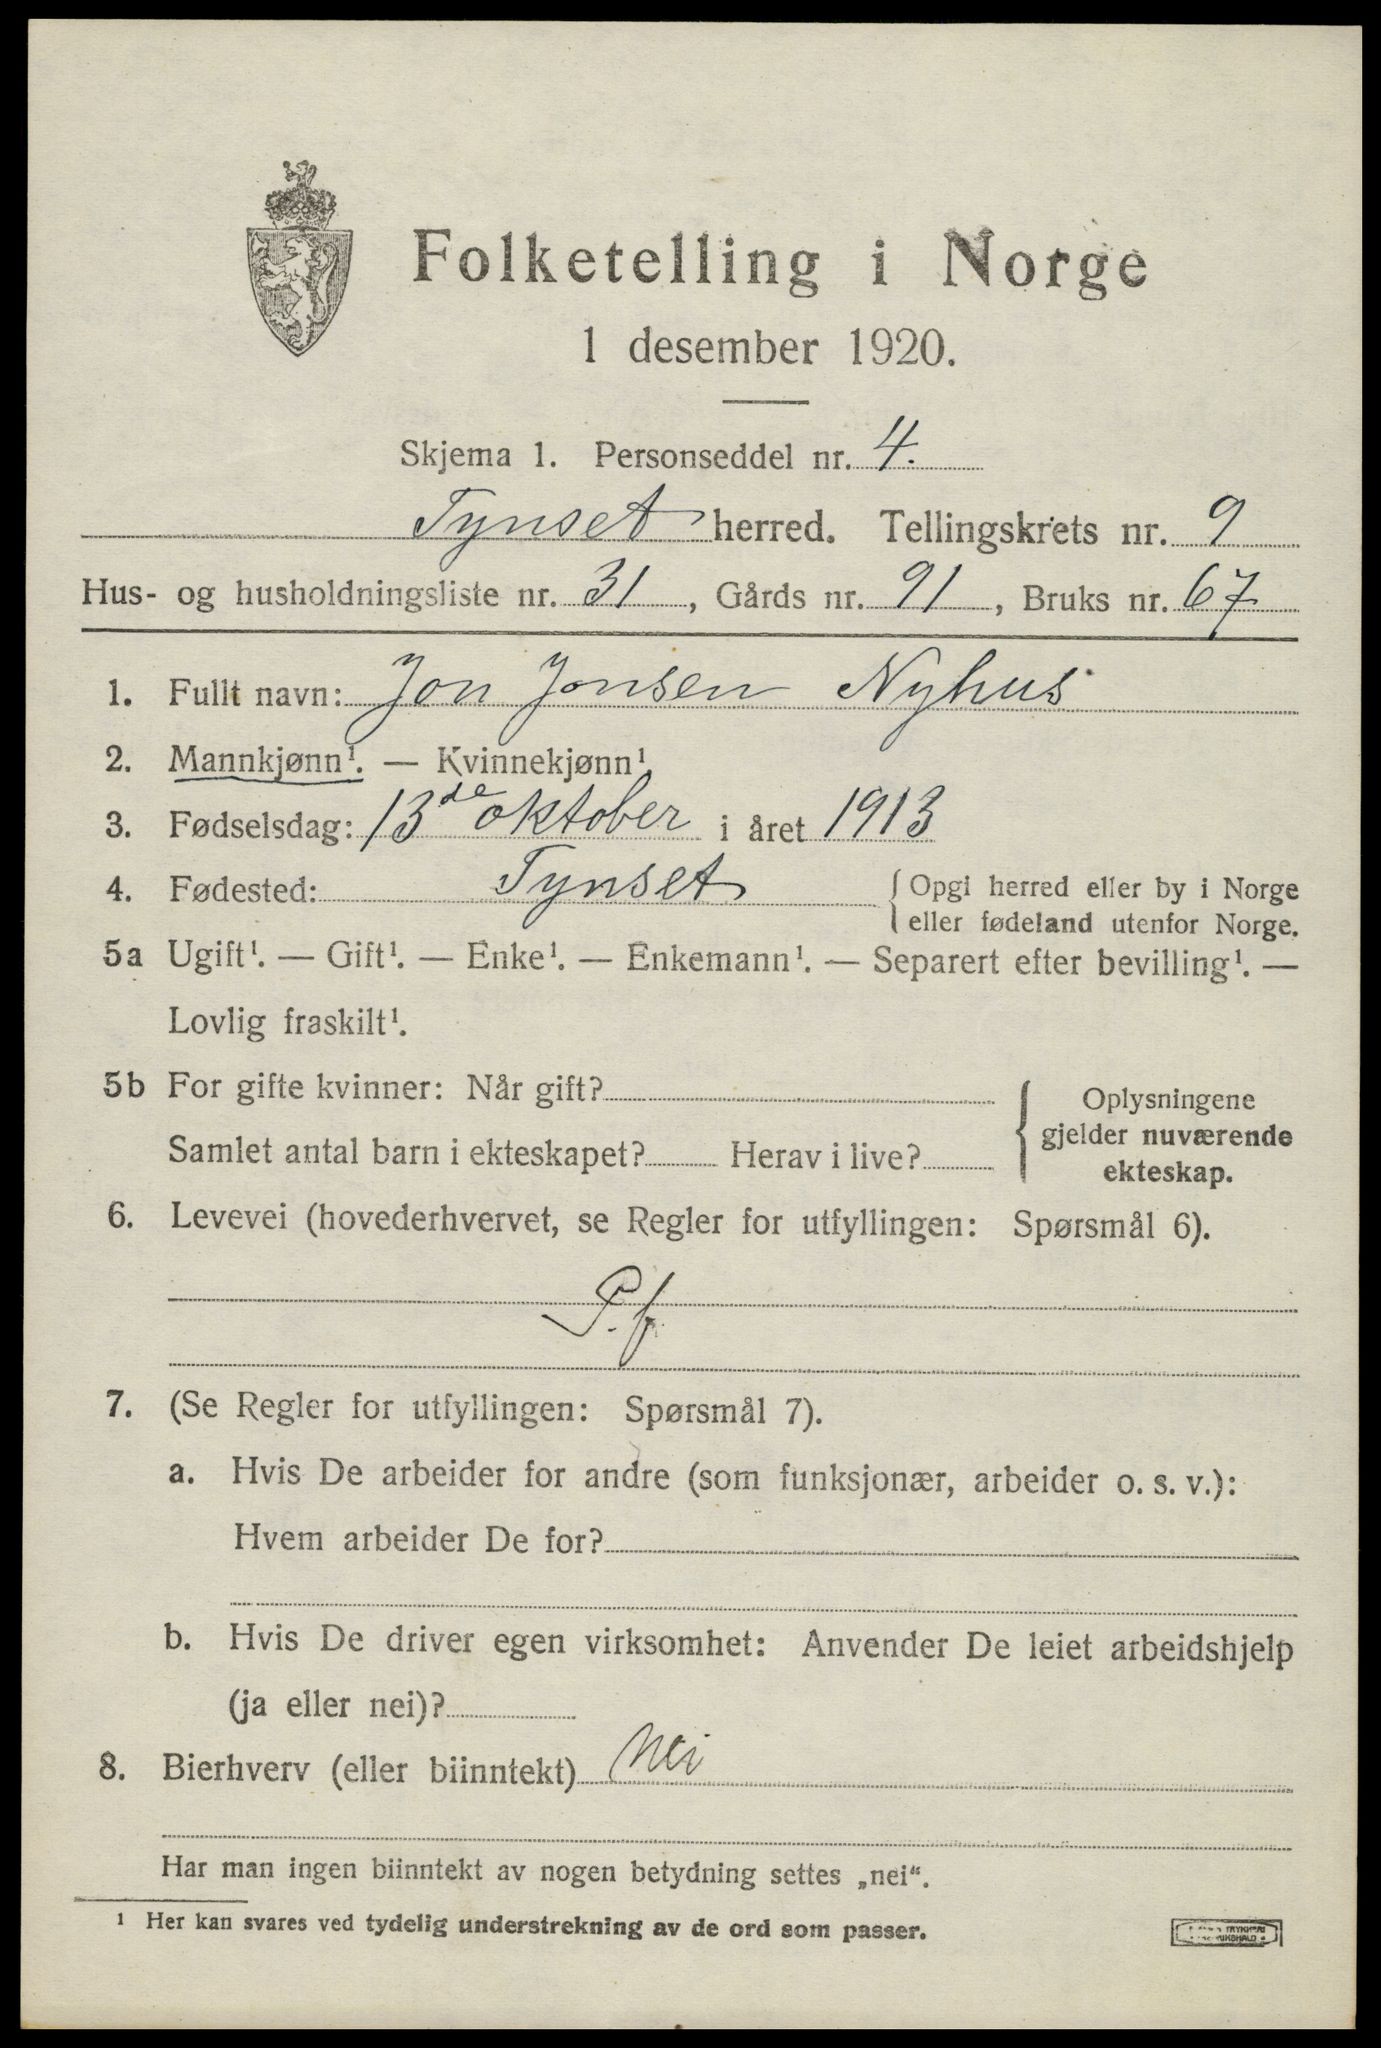 Folketelling i Norge
1 desember 1920.
Skjema 1. Personseddel nr. 4.
Tynset herred. Tellingskrets nr. 9
Hus- og husholdningsliste nr. 31, Gårds nr. 91, Bruks nr. 67
1. Fullt navn: Jon Jonsen Nyhus
2. Mannkjønn¹. — Kvinnekjønn¹.
3. Fødselsdag: 13de oktober i året 1913
4. Fødested: Tynset {Opgi herred eller by i Norge
eller fødeland utenfor Norge.
5a Ugift¹. — Gift¹. — Enke¹. — Enkemann¹. — Separert efter bevilling¹. —
Lovlig fraskilt¹.
5b For gifte kvinner: Når gift?
Samlet antal barn i ekteskapet? Herav i live?
Oplysningene
gjelder nuværende
ekteskap.
6. Levevei (hovederhvervet, se Regler for utfyllingen: Spørsmål 6).
P. f.
7. (Se Regler for utfyllingen: Spørsmål 7).
a. Hvis De arbeider for andre (som funksjonær, arbeider o. s. v.):
Hvem arbeider De for?
b. Hvis De driver egen virksomhet: Anvender De leiet arbeidshjelp
(ja eller nei)?
8. Bierhverv (eller biinntekt) Nei
Har man ingen biinntekt av nogen betydning settes „nei“.
¹ Her kan svares ved tydelig understrekning av de ord som passer.